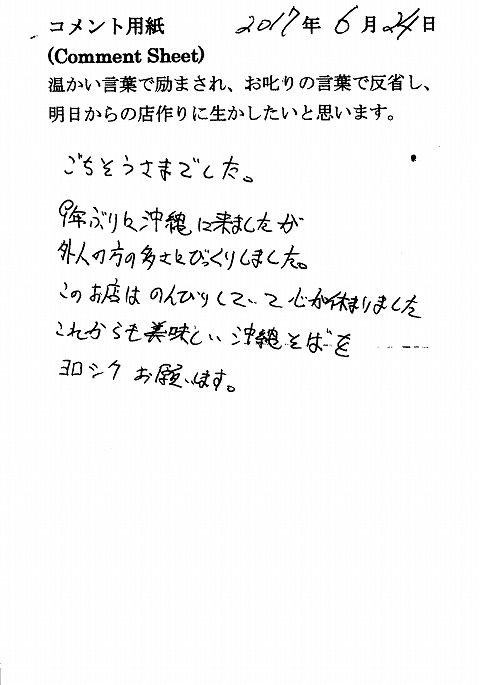 コメント用紙 2017年 6月24日
(Comment Sheet)
温かい言葉で励まされ、お叱りの言葉で反省し、
明日からの店作りに生かしたいと思います。
ごちそうさまでした。
9年ぶりに沖縄に来ましたが
外人の方の多さにびっくりしました。
このお店はのんびりしていて心が休まりました
これからも美味しい沖縄そばを
ヨロシクお願いします。